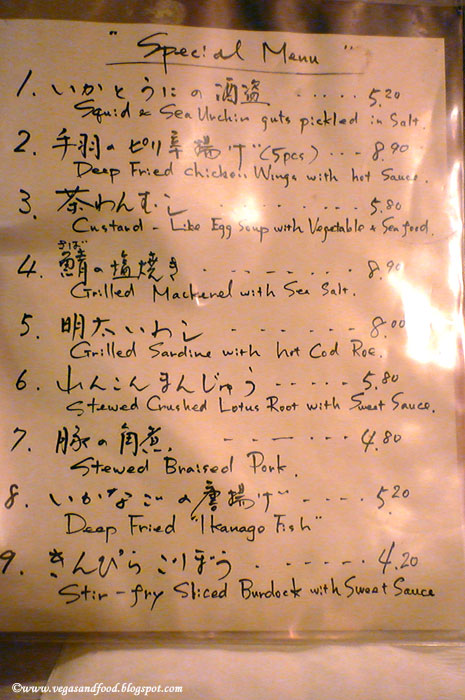 "Special Menu"
1. いかとうにの酒盗 ..... 5.20
Squid & Sea Urchin guts pickled in Salt.
2. 手羽のピリ辛揚げ(5pcs) ... 8.90
Deep Fried chicken Wings with hot Sauce.
3. 茶わんむし ..... 5.80
Custard - Like Egg Soup with Vegetable & Seafood.
さば
4. 鯖の塩焼き ........ 8.90
Grilled Mackerel with Sea Salt.
5. 明太いわし ...... 8.00
Grilled Sardine with hot Cod Roe.
6. れんこんまんじゅう ...... 5.80
Stewed Crushed Lotus Root with Sweet Sauce.
7. 豚の角煮. ...... 4.80
Stewed Braised Pork.
8. いかなごの唐揚げ ..... 5.20
Deep Fried "Ikanago Fish"
9. きんぴらごぼう ....... 4.20
Stir-fry Sliced Burdock with Sweet Sauce
©www.vegasandfood.blogspot.com